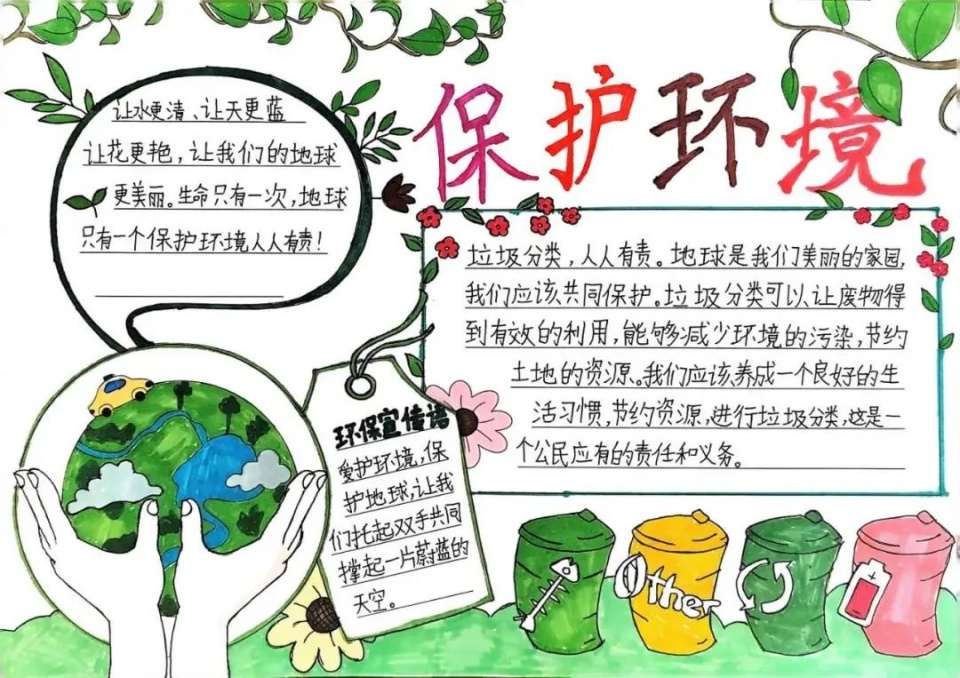 保护环境
让水更清、让天更蓝
让花更艳,让我们的地球
更美丽。生命只有一次,地球
只有一个保护环境人人有责!
垃圾分类,人人有责。地球是我们美丽的家园,
我们应该共同保护。垃圾分类可以让废物得
到有效的利用,能够减少环境的污染,节约
土地的资源。我们应该养成一个良好的生
活习惯,节约资源,进行垃圾分类,这是一
个公民应有的责任和义务。
环保宣传语
爱护环境,保
护地球,让我
们托起双手共同
撑起一片蔚蓝的
天空。
Other